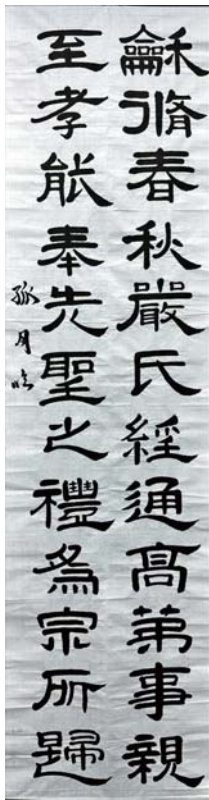 龢脩春秋嚴氏經通高第事親
至孝能奉先聖之禮為宗所歸
孤月臨